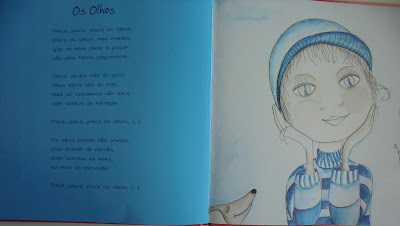 Os Olhos
Pisca, pisca, pisca os olhos,
pisca os olhos, meu menino,
que os teus olhos a piscar
são dois faróis pequeninos.
Olhos verdes são de gato,
olhos azuis são de mar,
mas os castanhos são
com sonhos de
Pisca, pisca, pisca os olhos, (...)
Os olhos pretos são pretos,
duas
duas estrelas na noite
no meio da escuridão.
Pisca, pisca, pisca os olhos, (...)